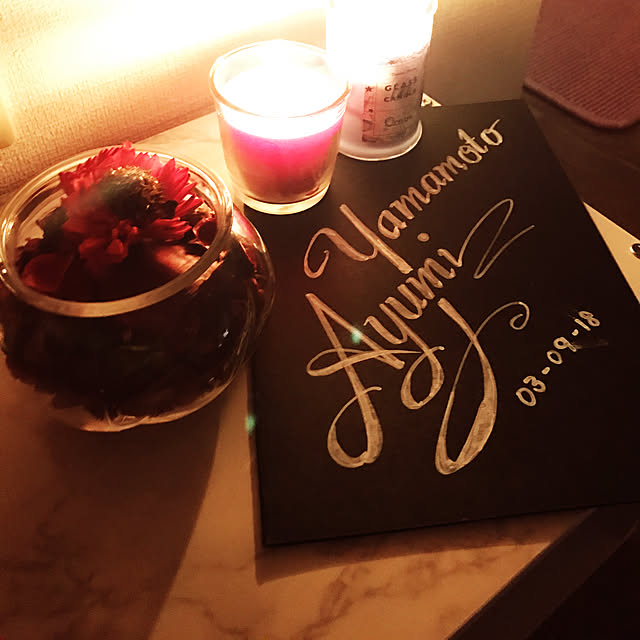 GLASS
CANDLE
Yamamoto
Ayumi
03-09-18